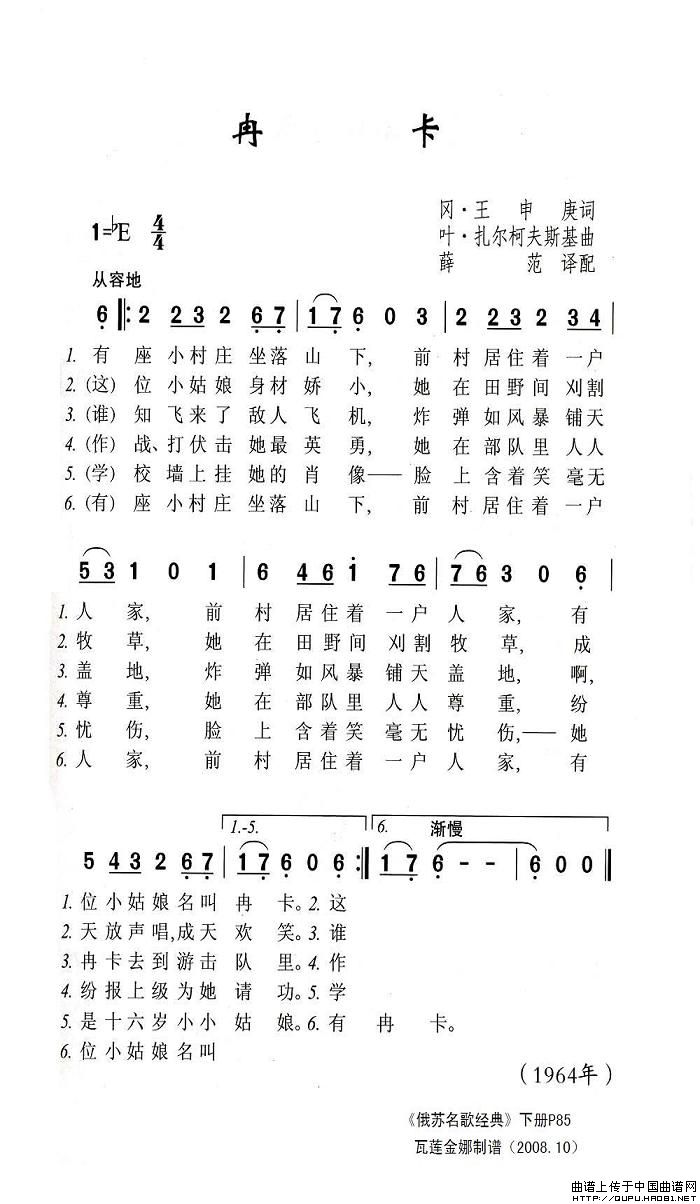 冉 卡
1=♭E 4/4
冈·王 申 庚词
叶·扎尔柯夫斯基曲
薛 范 译配
从容地
6 ‖: 2 2 3 2 6 7 | 1 7 6 0 3 | 2 2 3 2 3 4 |
1. 有 座 小 村 庄 坐 落 山 下, 前 村 居 住 着 一 户
2. (这) 位 小 姑 娘 身 材 娇 小, 她 在 田 野 间 刈 割
3. (谁) 知 飞 来 了 敌 人 飞 机, 炸 弹 如 风 暴 铺 天
4. (作) 战、打 伏 击 她 最 英 勇, 她 在 部 队 里 人 人
5. (学) 校 墙 上 挂 她 的 肖 像 —— 脸 上 含 着 笑 毫 无
6. (有) 座 小 村 庄 坐 落 山 下, 前 村 居 住 着 一 户
5 3 1 0 1 | 6 4 6 1 7 6 | 7 6 3 0 6 |
1. 人 家, 前 村 居 住 着 一 户 人 家, 有
2. 牧 草, 她 在 田 野 间 刈 割 牧 草, 成
3. 盖 地, 炸 弹 如 风 暴 铺 天 盖 地, 啊,
4. 尊 重, 她 在 部 队 里 人 人 尊 重, 纷
5. 忧 伤, 脸 上 含 着 笑 毫 无 忧 伤, —— 她
6. 人 家, 前 村 居 住 着 一 户 人 家, 有
1.-5. 6. 渐慢
5 4 3 2 6 7 | 1 7 6 0 6 :‖ 1 7 6 - - | 6 0 0 ‖
1. 位 小 姑 娘 名 叫 冉 卡。2. 这
2. 天 放 声 唱, 成 天 欢 笑。3. 谁
3. 冉 卡 去 到 游 击 队 里。4. 作
4. 纷 报 上 级 为 她 请 功。5. 学
5. 是 十 六 岁 小 小 姑 娘。6. 有 冉 卡。
6. 位 小 姑 娘 名 叫
(1964年)
《俄苏名歌经典》下册P85
瓦莲金娜制谱（2008.10）
曲谱上传于中国曲谱网
HTTP://QUPU.HAO81.NET